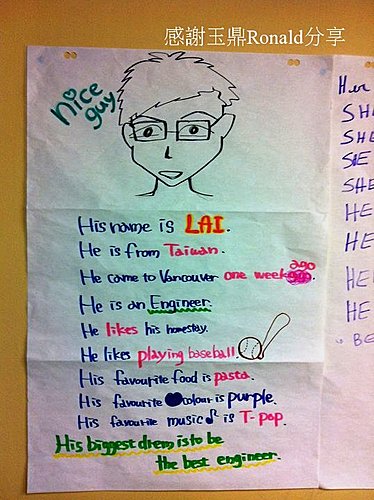 感謝玉鼎Ronald分享
nice
guy
His name is LAI.
He is from Taiwan.
He came to Vancouver one week ago.
He is an Engineer.
He likes his homestay.
He likes playing baseball
His favourite food is pasta.
His favourite colour is purple.
His favourite music is T-pop.
His biggest drem is to be
the best engineer.
Her
SH
SHE
SE
SHE
HE
HE
HE
HE
BE